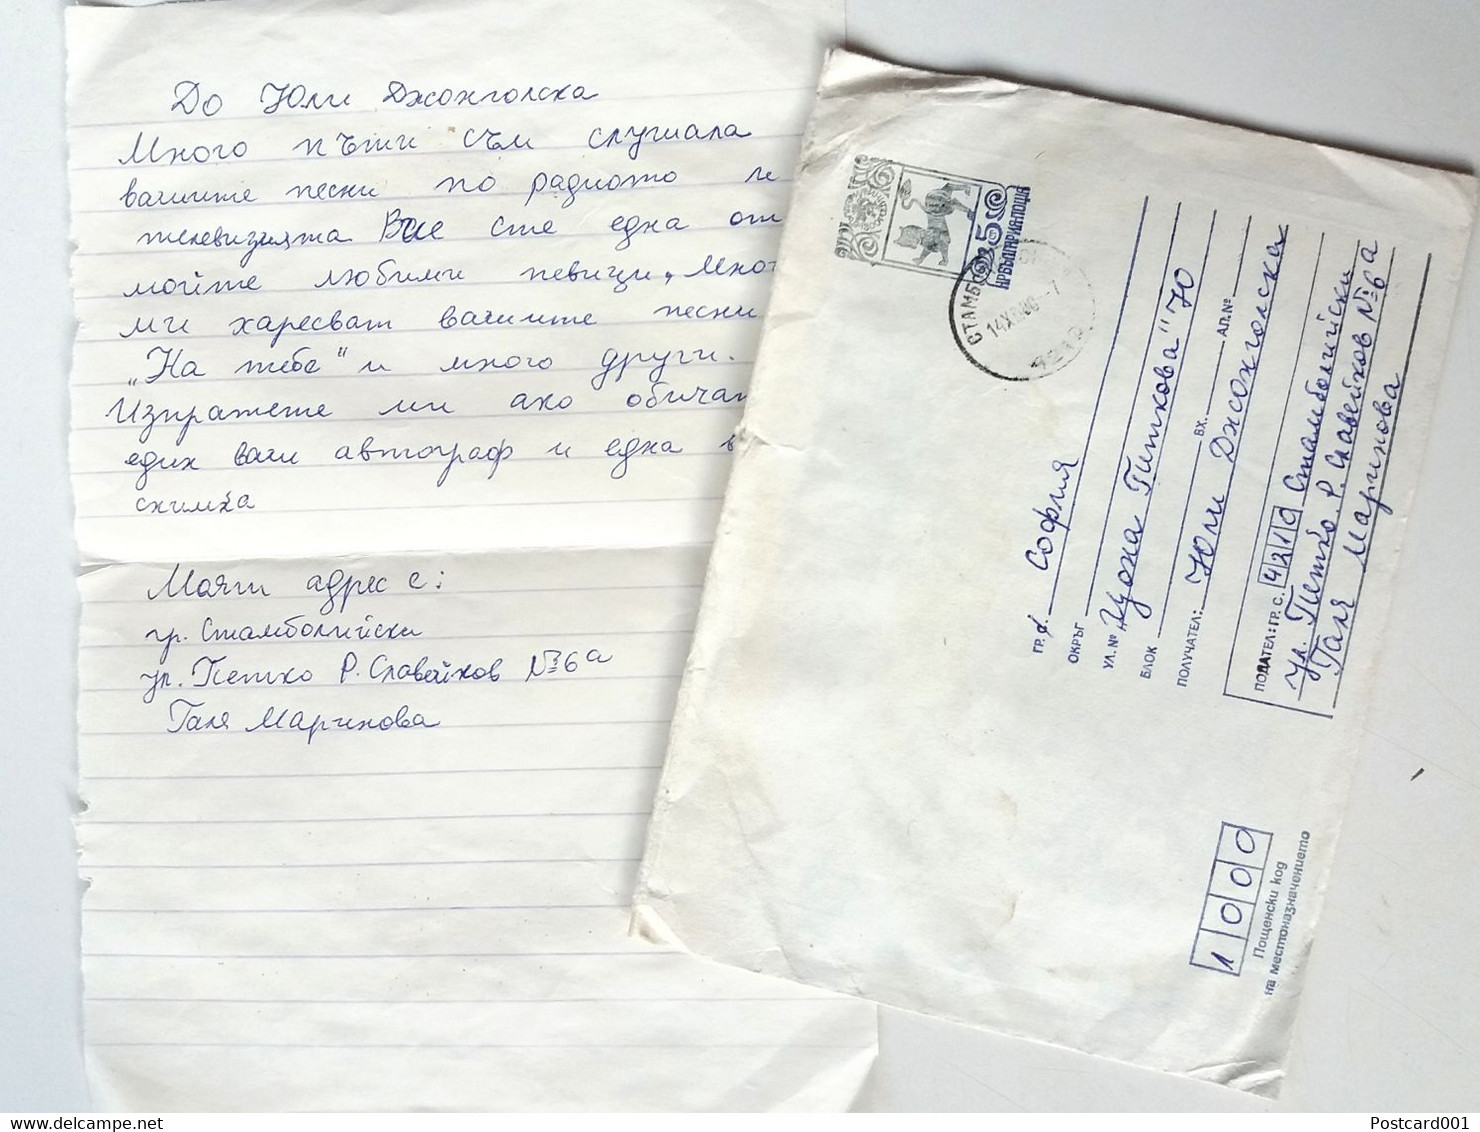 До Юли Джонголска
Много пъти съм слушала
вашите песни по радиото и
телевизията Вие сте една от
мойте любими певици, Мно
ми харесват вашите песни
„На тебе" и много други.
Изпратете ми ако обичат
един ваш автограф и една в
снимка
Моят адрес е:
гр. Стамболийски
ул. Петко Р. Славейков №6а
Галя Маринова
5
НРБЪЛГАРИЯ ПОЩА
4210
ГР. С. София
ОКРЪГ
УЛ. №
БЛОК ВХ. АП.№
ПОЛУЧАТЕЛ: Юли Джонголска
ПОДАТЕЛ: ГР. С. 4210 Стамболийски
ул. Петко Р. Славейков №6а
Галя Маринова
1000
Пощенски код
на местоназначението
Postcard001